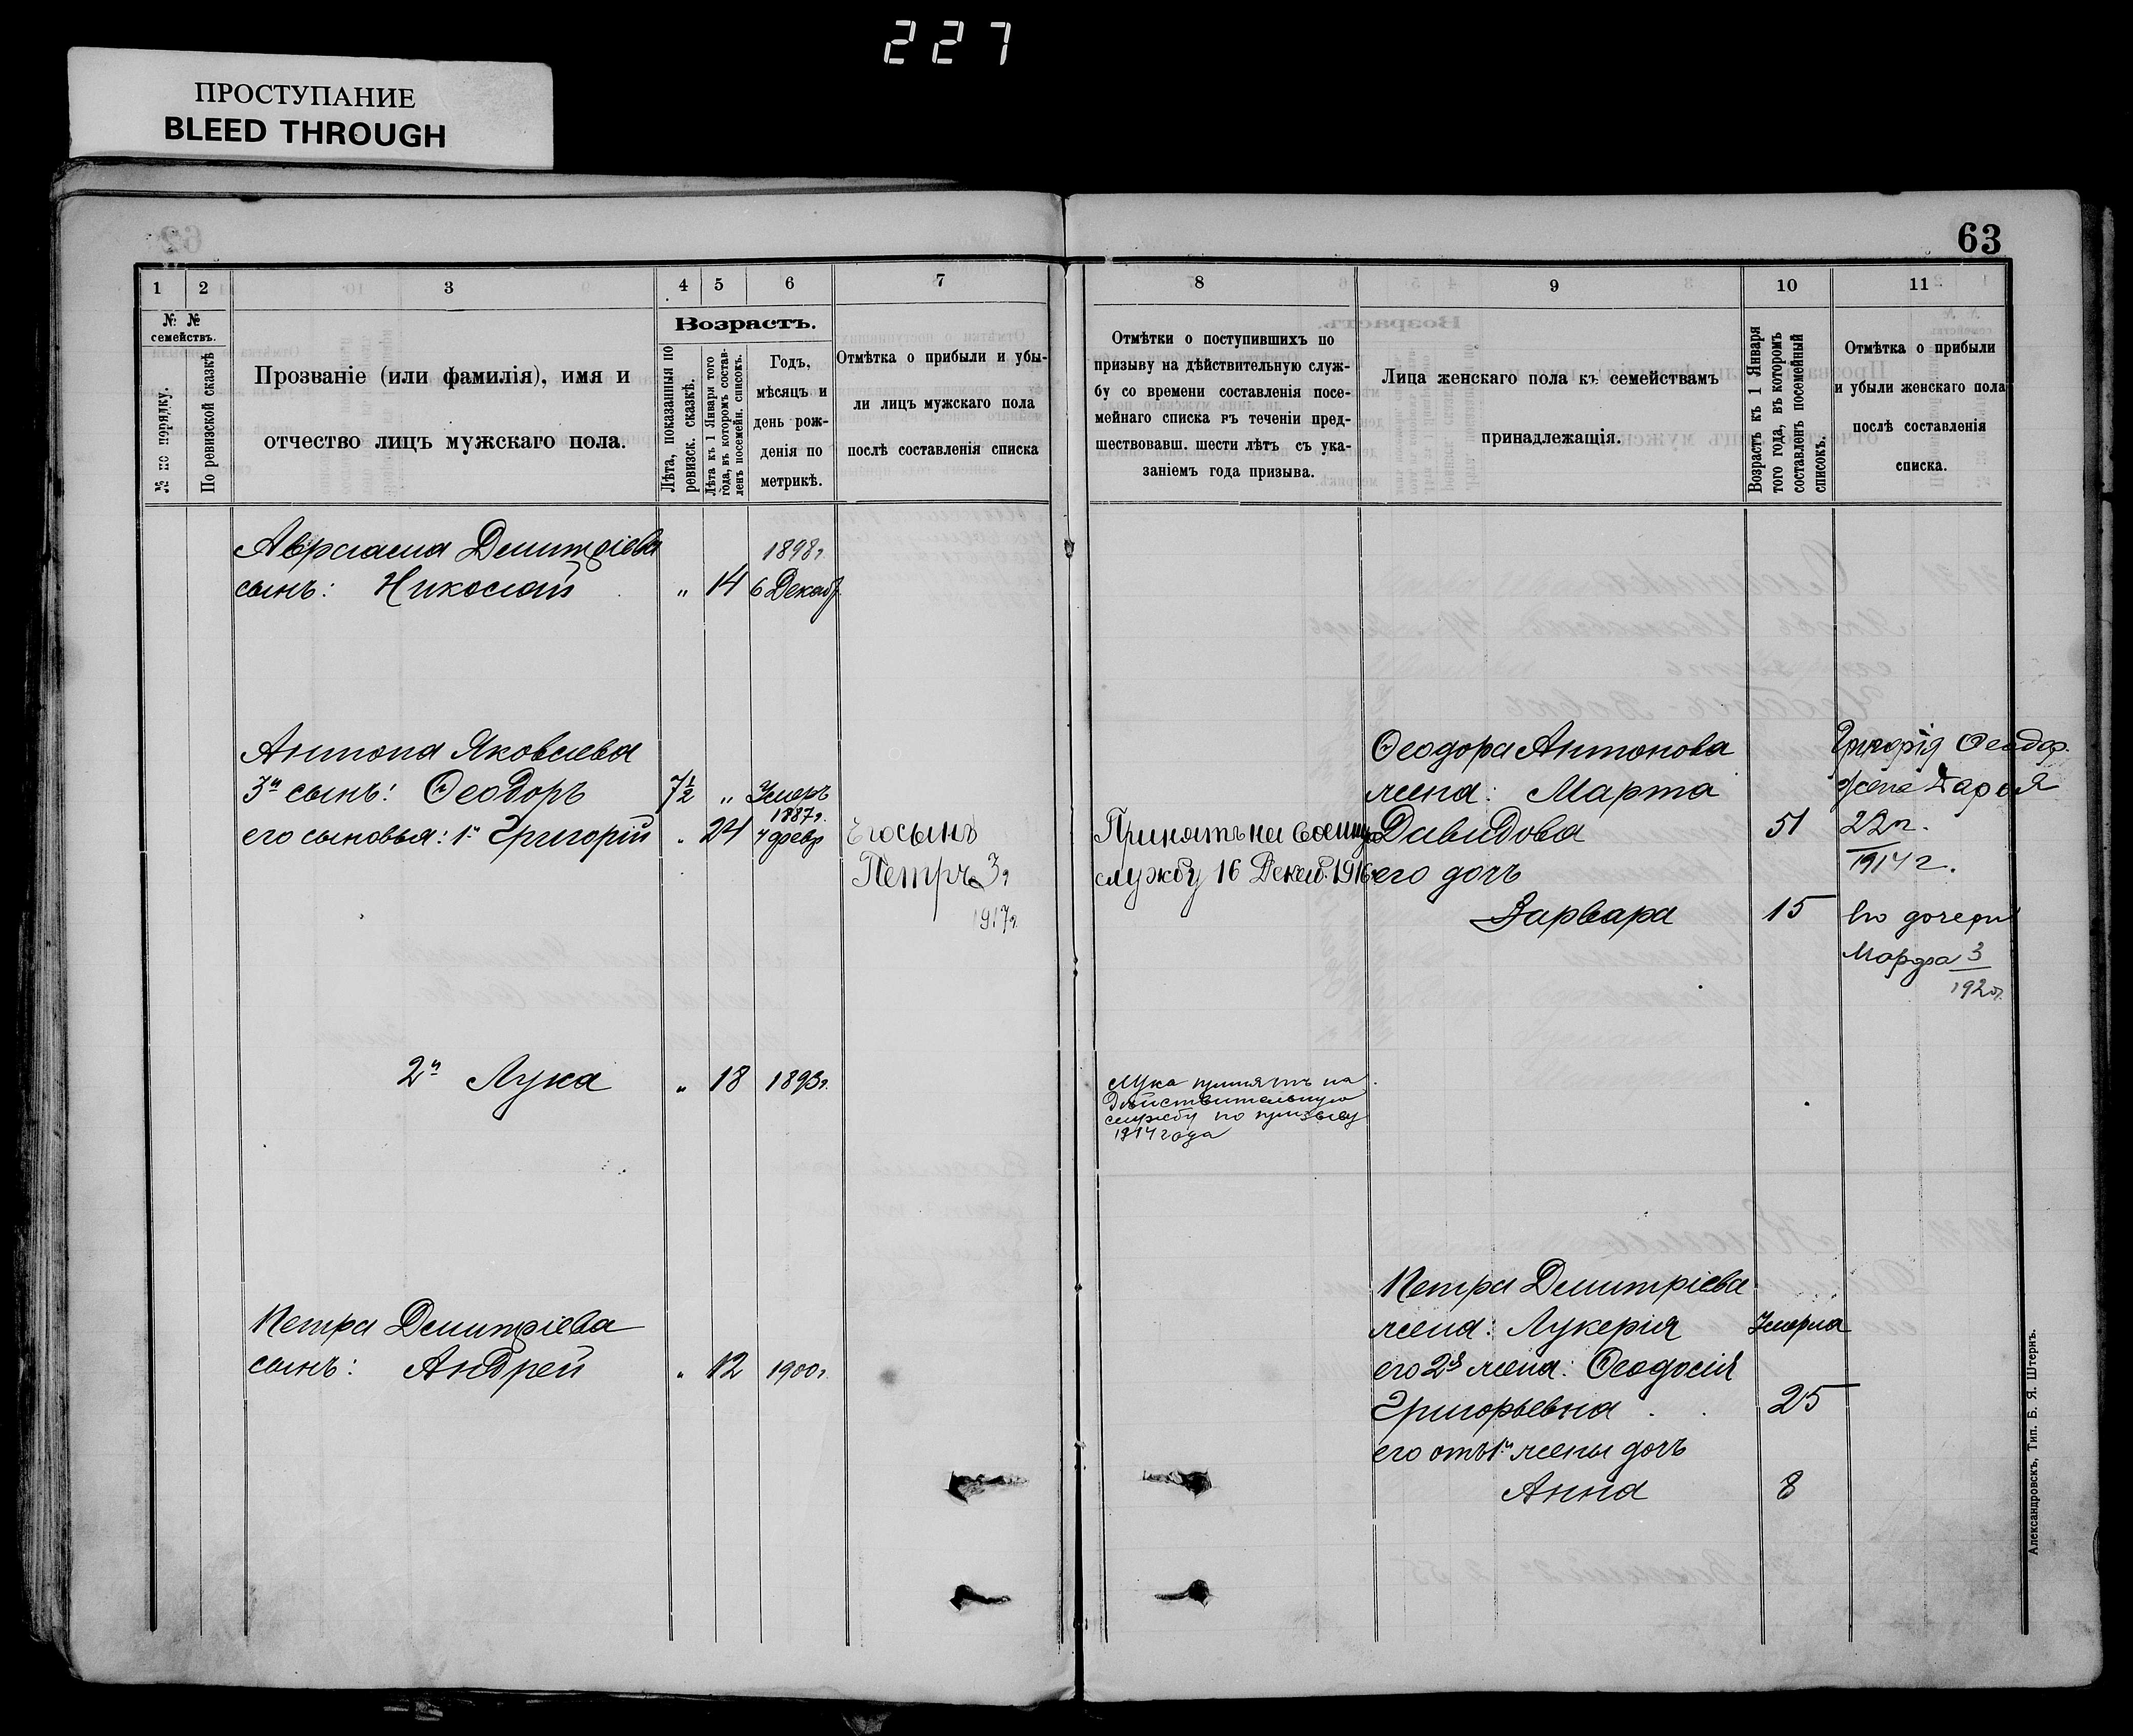 227
ПРОСТУПАНИЕ
BLEED THROUGH
63
1 2 3 4 5 6 7
№ № семействъ.
№ по порядку.
По ревизской сказкѣ
Прозваніе (или фамилія), имя и
отчество лицъ мужскаго пола.
Возрастъ.
Лѣта, показанныя по
ревизск. сказкѣ.
Лѣта къ 1 Января того
года, въ которомъ состав-
ленъ посемейн. списокъ.
Годъ,
мѣсяцъ и
день рож-
денія по
метрикѣ.
Отмѣтка о прибыли и убы-
ли лицъ мужскаго пола
послѣ составленія списка
Авраама Димитріева 1898г.
сынъ: Николай " 14 6 Декаб.
Антона Яковлева
3й сынъ: Ѳеодоръ 7½ " Умеръ
1887г.
его сыновья: 1й Григорій " 24 4 февр
Его сынъ
Петръ 3
1917г.
2й Лука " 18 1893г.
Петра Димитріева
сынъ: Андрей " 12 1900г.
8 9 10 11
Отмѣтки о поступившихъ по
призыву на дѣйствительную служ-
бу со времени составленія посе-
мейнаго списка въ теченіи пред-
шествовавш. шести лѣтъ съ ука-
заніемъ года призыва.
Лица женскаго пола къ семействамъ
принадлежащія.
Возрастъ къ 1 Января
того года, въ которомъ
составленъ посемейный
списокъ.
Отмѣтка о прибыли
и убыли женскаго пола
послѣ составленія
списка.
Ѳеодора Антонова
жена: Марта
Давидова 51
его дочь
Варвара 15
Принятъ на Военную
службу 16 Декаб. 1916г.
Григорія Ѳеодор.
жена Дарья
22л.
1914г.
его дочери
Марфа 3
1920г.
Лука принятъ на
Дѣйствительную
службу по призыву
1914 года
Петра Димитріева
жена: Лукерія Умерла
его 2я жена: Ѳеодосія
Григорьевна 25
его отъ 1й жены дочь
Анна 8
Александровскъ, Тип. Б. Я. Штернъ.